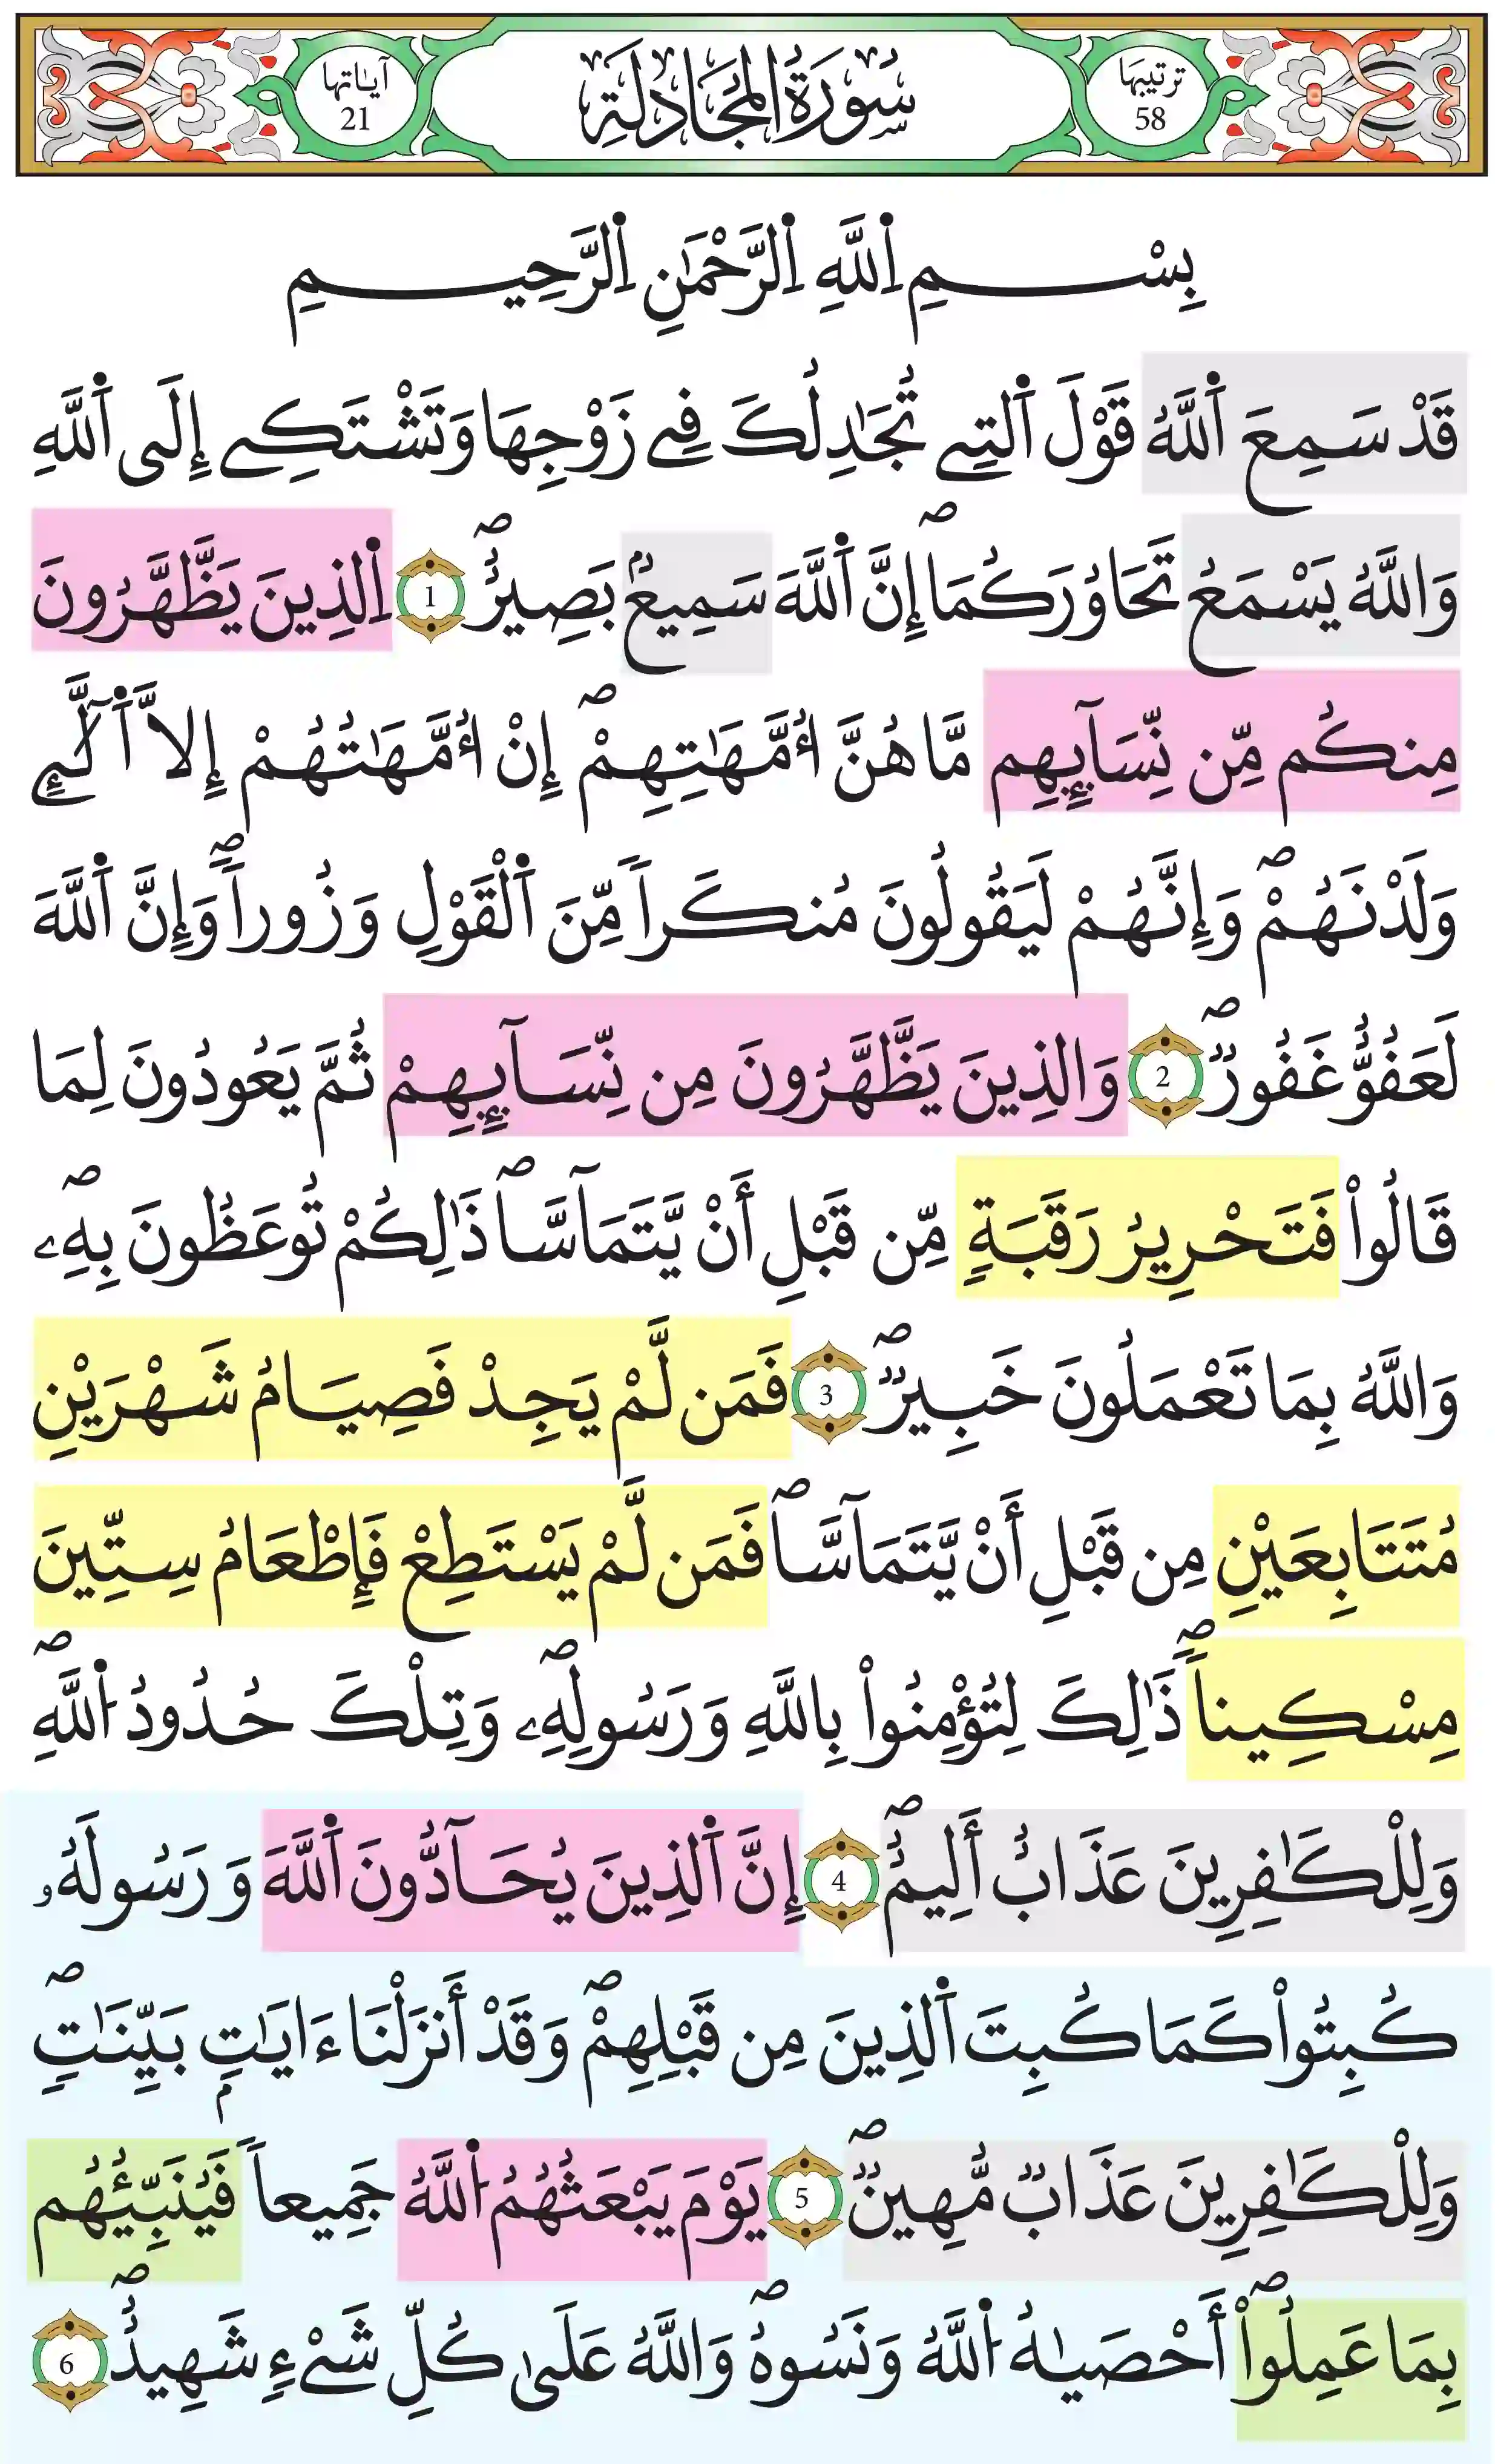 ترتيبها
58
سُورَةُ المُجَادلَةِ
آياتها
21
بِسْمِ اِ۬للَّهِ اِ۬لرَّحْمَٰنِ اِ۬لرَّحِيمِ
قَدْ سَمِعَ اَ۬للَّهُ قَوْلَ اَ۬لتِے تُجَٰدِلُكَ فِے زَوْجِهَا وَتَشْتَكِے إِلَى اَ۬للَّهِ
وَاللَّهُ يَسْمَعُ تَحَاوُرَكُمَاۖ إِنَّ اَ۬للَّهَ سَمِيعُۢ بَصِيرٌۖ 1 اِ۬لذِينَ يَظَّهَّرُونَ
مِنكُم مِّن نِّسَآئِهِم مَّا هُنَّ أُمَّهَٰتِهِمْۖ إِنْ أُمَّهَٰتُهُمْ إِلَّا اَ۬لَّٰٓـِٕے
وَلَدْنَهُمْۖ وَإِنَّهُمْ لَيَقُولُونَ مُنكَراٗ مِّنَ اَ۬لْقَوْلِ وَزُوراٗۖ وَإِنَّ اَ۬للَّهَ
لَعَفُوٌّ غَفُورٞۖ 2 وَالذِينَ يَظَّهَّرُونَ مِن نِّسَآئِهِمْ ثُمَّ يَعُودُونَ لِمَا
قَالُواْ فَتَحْرِيرُ رَقَبَةٖ مِّن قَبْلِ أَنْ يَّتَمَآسَّاۖ ذَٰلِكُمْ تُوعَظُونَ بِهِۦۖ
وَاللَّهُ بِمَا تَعْمَلُونَ خَبِيرٞۖ 3 فَمَن لَّمْ يَجِدْ فَصِيَامُ شَهْرَيْنِ
مُتَتَابِعَيْنِ مِن قَبْلِ أَنْ يَّتَمَآسَّاۖ فَمَن لَّمْ يَسْتَطِعْ فَإِطْعَامُ سِتِّينَ
مِسْكِيناٗۖ ذَٰلِكَ لِتُؤْمِنُواْ بِاللَّهِ وَرَسُولِهِۦۖ وَتِلْكَ حُدُودُ اُ۬للَّهِۖ
وَلِلْكَٰفِرِينَ عَذَابٌ أَلِيمٌۖ 4 إِنَّ اَ۬لذِينَ يُحَآدُّونَ اَ۬للَّهَ وَرَسُولَهُۥ
كُبِتُواْ كَمَا كُبِتَ اَ۬لذِينَ مِن قَبْلِهِمْۖ وَقَدْ أَنزَلْنَا ءَايَٰتِۢ بَيِّنَٰتٖۖ
وَلِلْكَٰفِرِينَ عَذَابٞ مُّهِينٞۖ 5 يَوْمَ يَبْعَثُهُمُ اُ۬للَّهُ جَمِيعاٗ فَيُنَبِّئُهُم
بِمَا عَمِلُواْۖ أَحْصَىٰهُ اُ۬للَّهُ وَنَسُوهُۖ وَاللَّهُ عَلَىٰ كُلِّ شَےْءٖ شَهِيدٌۖ 6